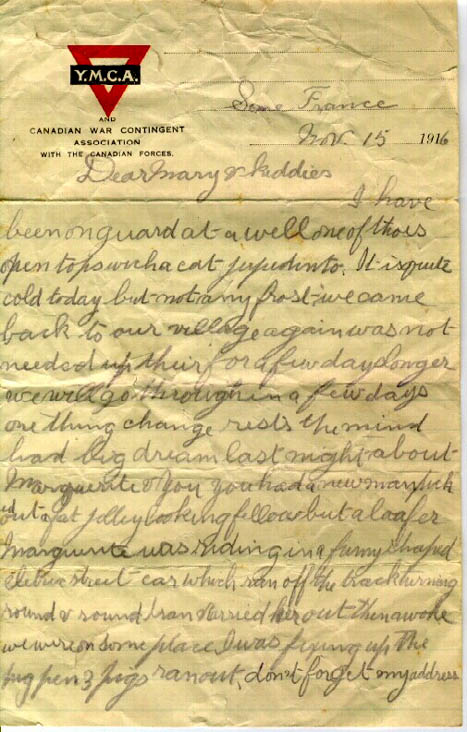 Y.M.C.A.
AND
CANADIAN WAR CONTINGENT
ASSOCIATION
WITH THE CANADIAN FORCES.
Some France
Nov. 15 1916
Dear Mary & Kiddies
I have
been on guard at a well one of thois
open tops wich a cat jupedinto. It is quite
cold today but not any frost, we came
back to our village again was not
needed up their for a few days longer
we will go through in a few days
one thing change rests the mind
had big dream last night about
Marguerite & you you had a new man pick
out a fat jolley looking fellow but a loafer
Marguerite was riding in a funny shaped
street car which ran off the track turning
round & round I ran & carried her out then awoke
we were on some place I was fixing up the
pig pen 3 pigs ran out, don't forget my address